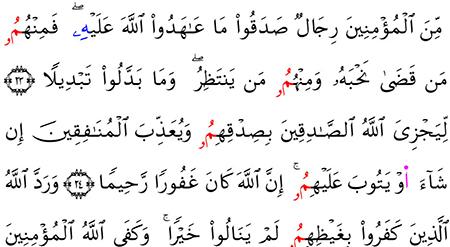 مِّنَ ٱلْمُؤْمِنِينَ رِجَالٌ صَدَقُوا۟ مَا عَـٰهَدُوا۟ ٱللَّهَ عَلَيْهِۦ ۖ فَمِنْهُمُۥ
مَن قَضَىٰ نَحْبَهُۥ وَمِنْهُمُۥ مَن يَنتَظِرُ ۖ وَمَا بَدَّلُوا۟ تَبْدِيلًا ﴿٢٣﴾
لِّيَجْزِىَ ٱللَّهُ ٱلصَّـٰدِقِينَ بِصِدْقِهِمُۥ وَيُعَذِّبَ ٱلْمُنَـٰفِقِينَ إِن
شَآءَ اَ۬وْ يَتُوبَ عَلَيْهِمُۥ ۚ إِنَّ ٱللَّهَ كَانَ غَفُورًا رَّحِيمًا ﴿٢٤﴾ وَرَدَّ ٱللَّهُ
ٱلَّذِينَ كَفَرُوا۟ بِغَيْظِهِمُۥ لَمْ يَنَالُوا۟ خَيْرًا ۚ وَكَفَى ٱللَّهُ ٱلْمُؤْمِنِينَ